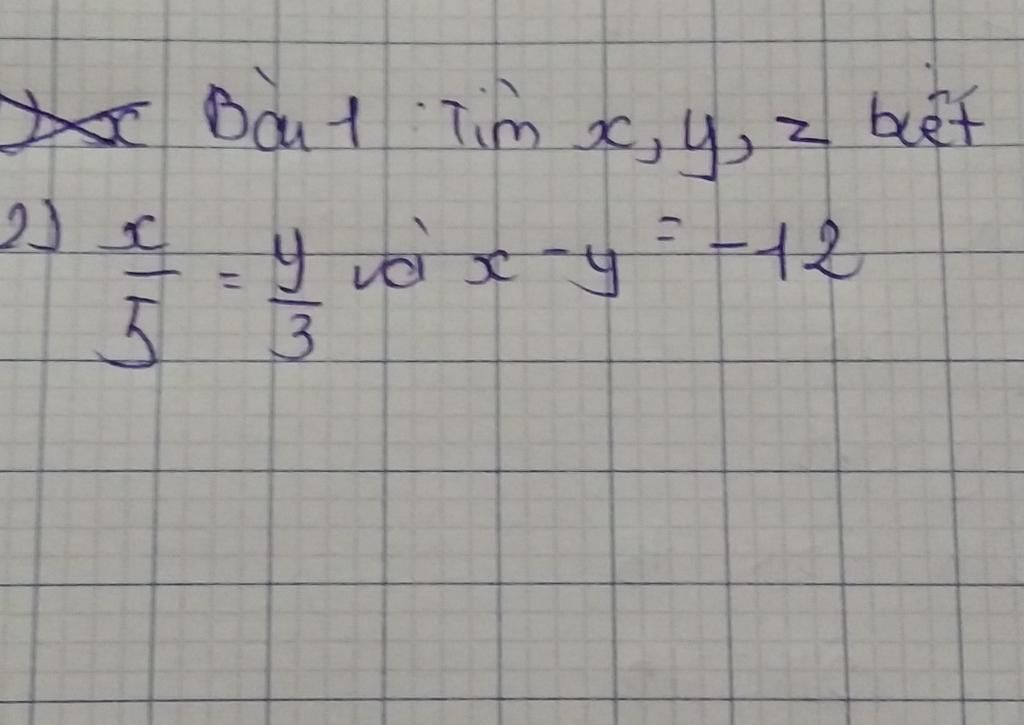 Bài 1 : Tìm x, y, z biết
2) x/5 = y/3 và x - y = -12